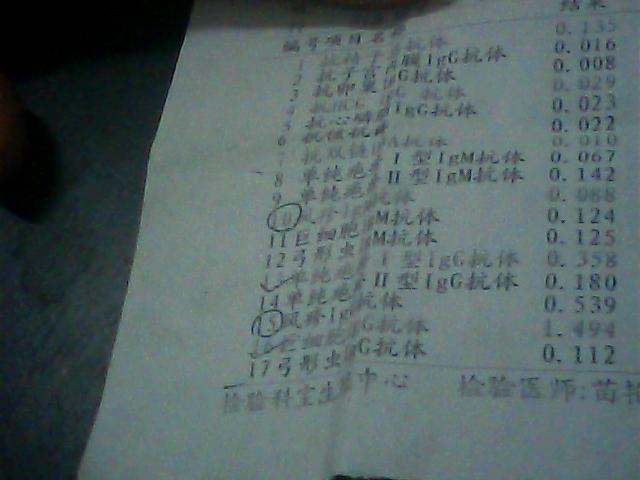 结果
编号项目名称
1 抗精子抗体 0.135
2 抗子宫内膜IgG抗体 0.016
3 抗卵巢IgG抗体 0.008
4 抗HCG IgG 抗体 0.029
5 抗心磷脂IgG抗体 0.023
6 抗体 0.022
7 抗双链 抗体 0.010
8 单纯疱 I 型IgM抗体 0.067
9 单纯疱 II 型IgM抗体 0.142
10 风疹Ig 抗体 0.088
11 巨细胞 M抗体 0.124
12 弓形虫 M抗体 0.125
单纯疱 I 型IgG抗体 0.358
14 单纯疱 II 型IgG抗体 0.180
15 风疹Ig 抗体 0.539
巨细胞 G抗体 1.494
17 弓形虫 G抗体 0.112
检验科室生 中心 检验医师:苗